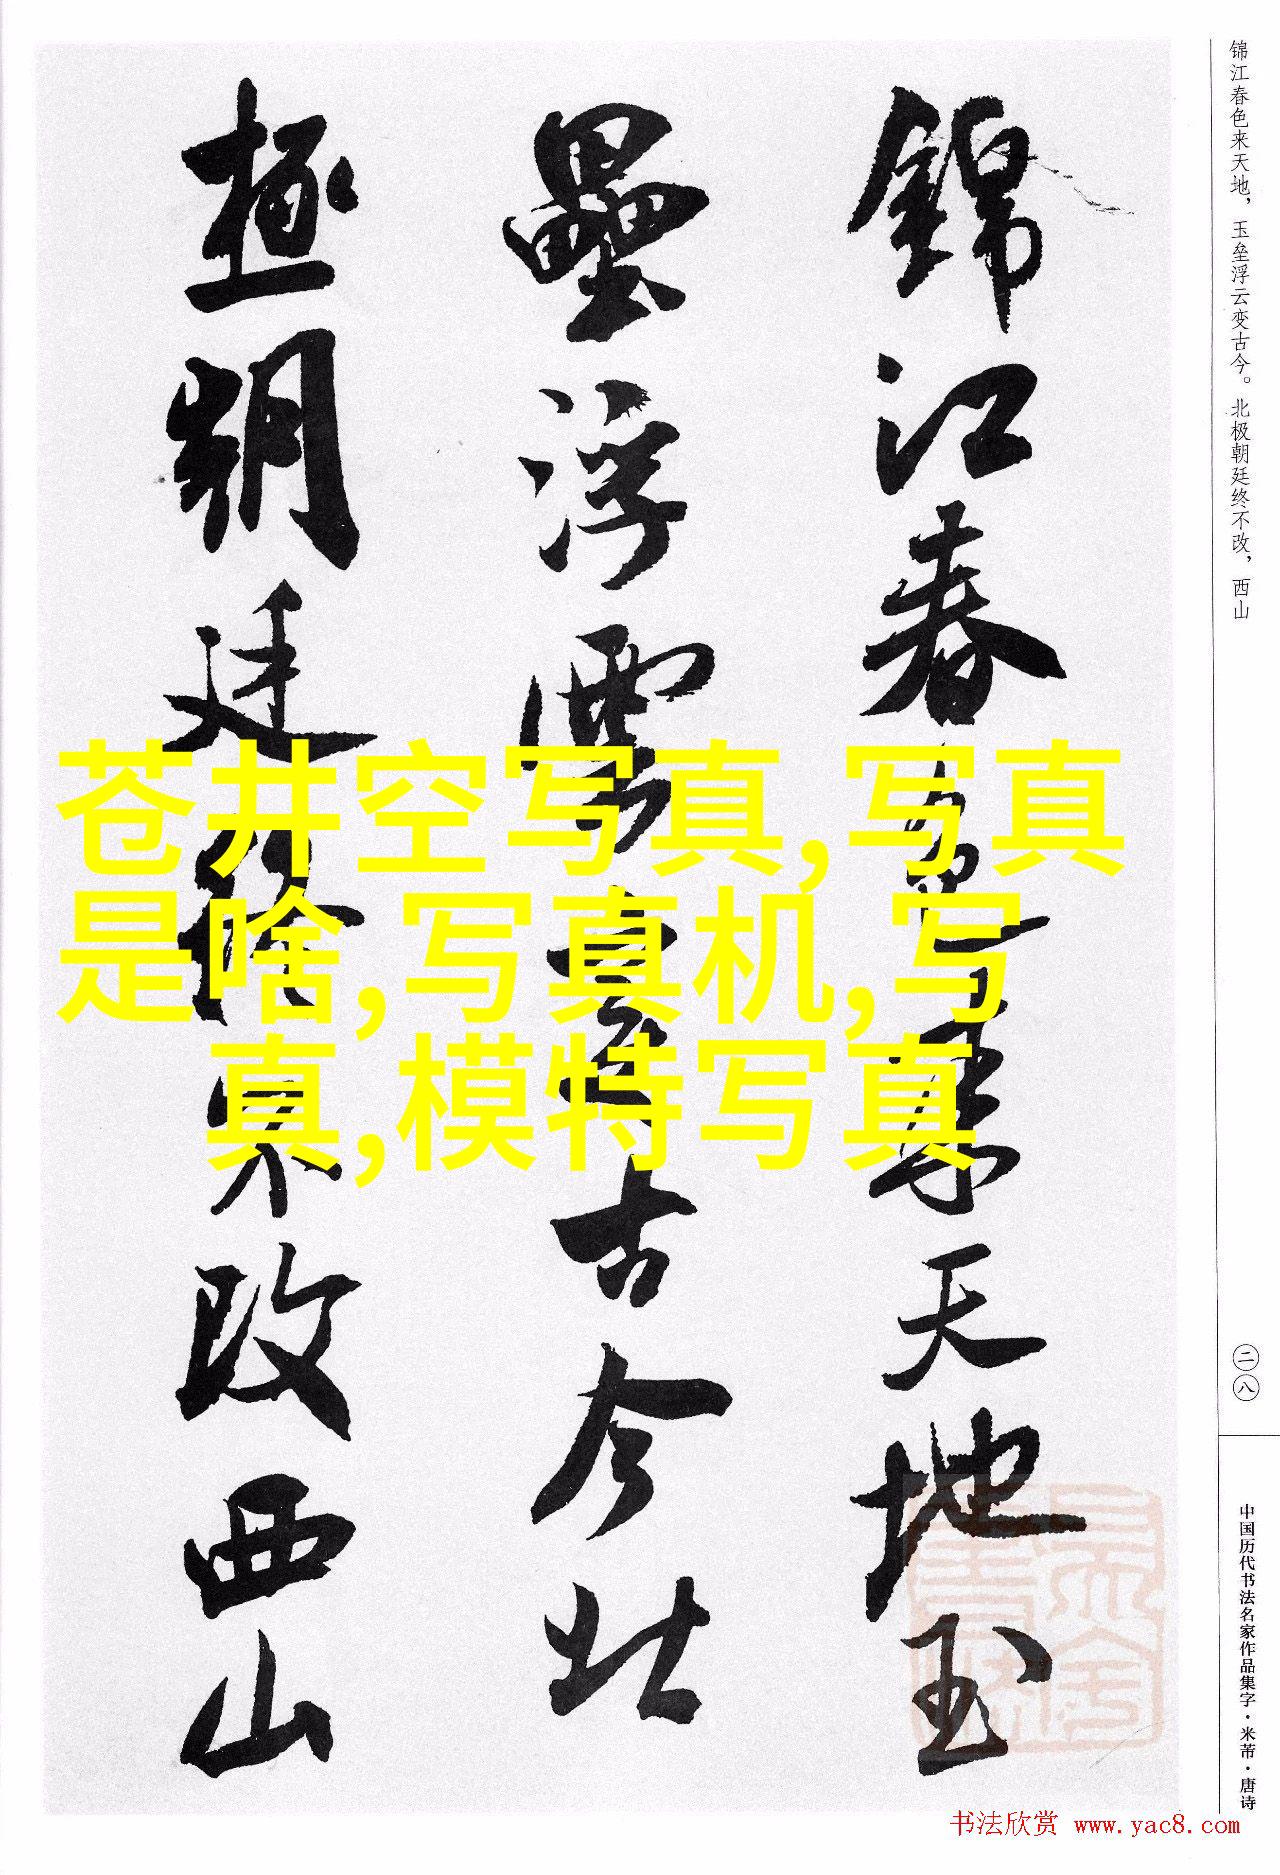 锦江春色来天地，玉垒浮云变古今。北极朝廷终不改，西山
錦江春色來天地玉
壘浮雲變古今北
極朝廷終不改西山
苍井空写真,写真
是啥,写真机,写
真,模特写真
二八
中国历代书法名家作品集字·米芾·唐诗
书法欣赏 www.yac8.com